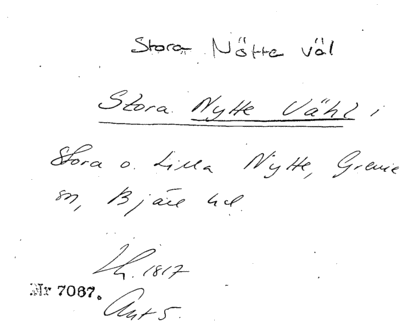 Stora Nötte väl
Stora Nytte Vähl i
Stora o. Lilla Nytte, Grevie
sn, Bjäre hd.
Lh. 1817
Nr 7067.
Akt 5.